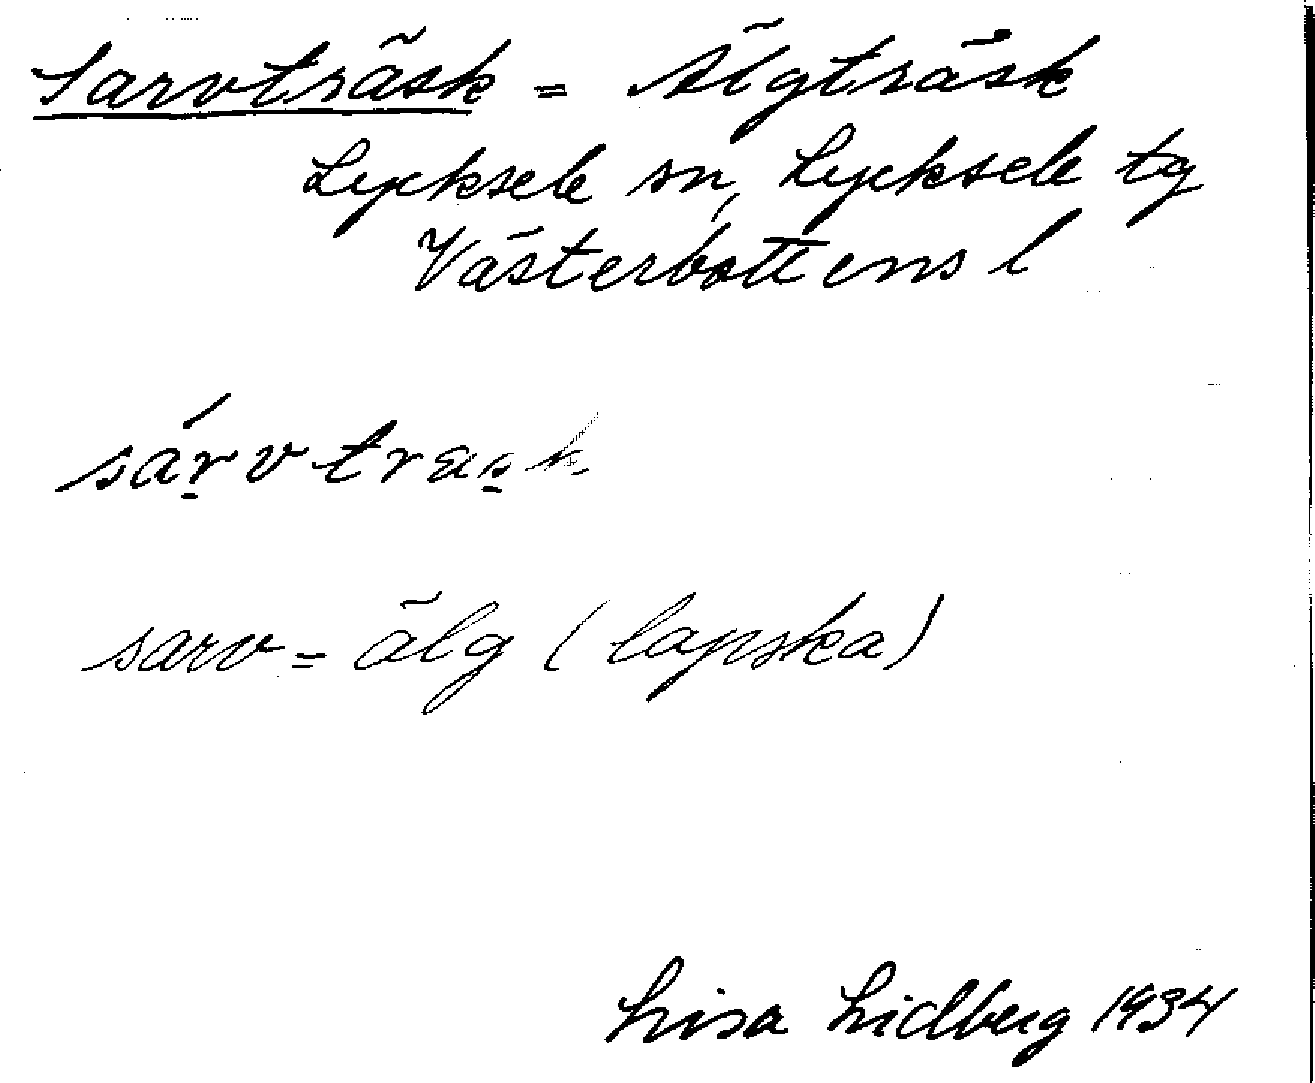 Sarvträsk = Älgträsk
Lycksele sn, Lycksele tg
Västerbottens l
sárvtræsk.
sarv = älg (lapska)
Lisa Lidberg 1934